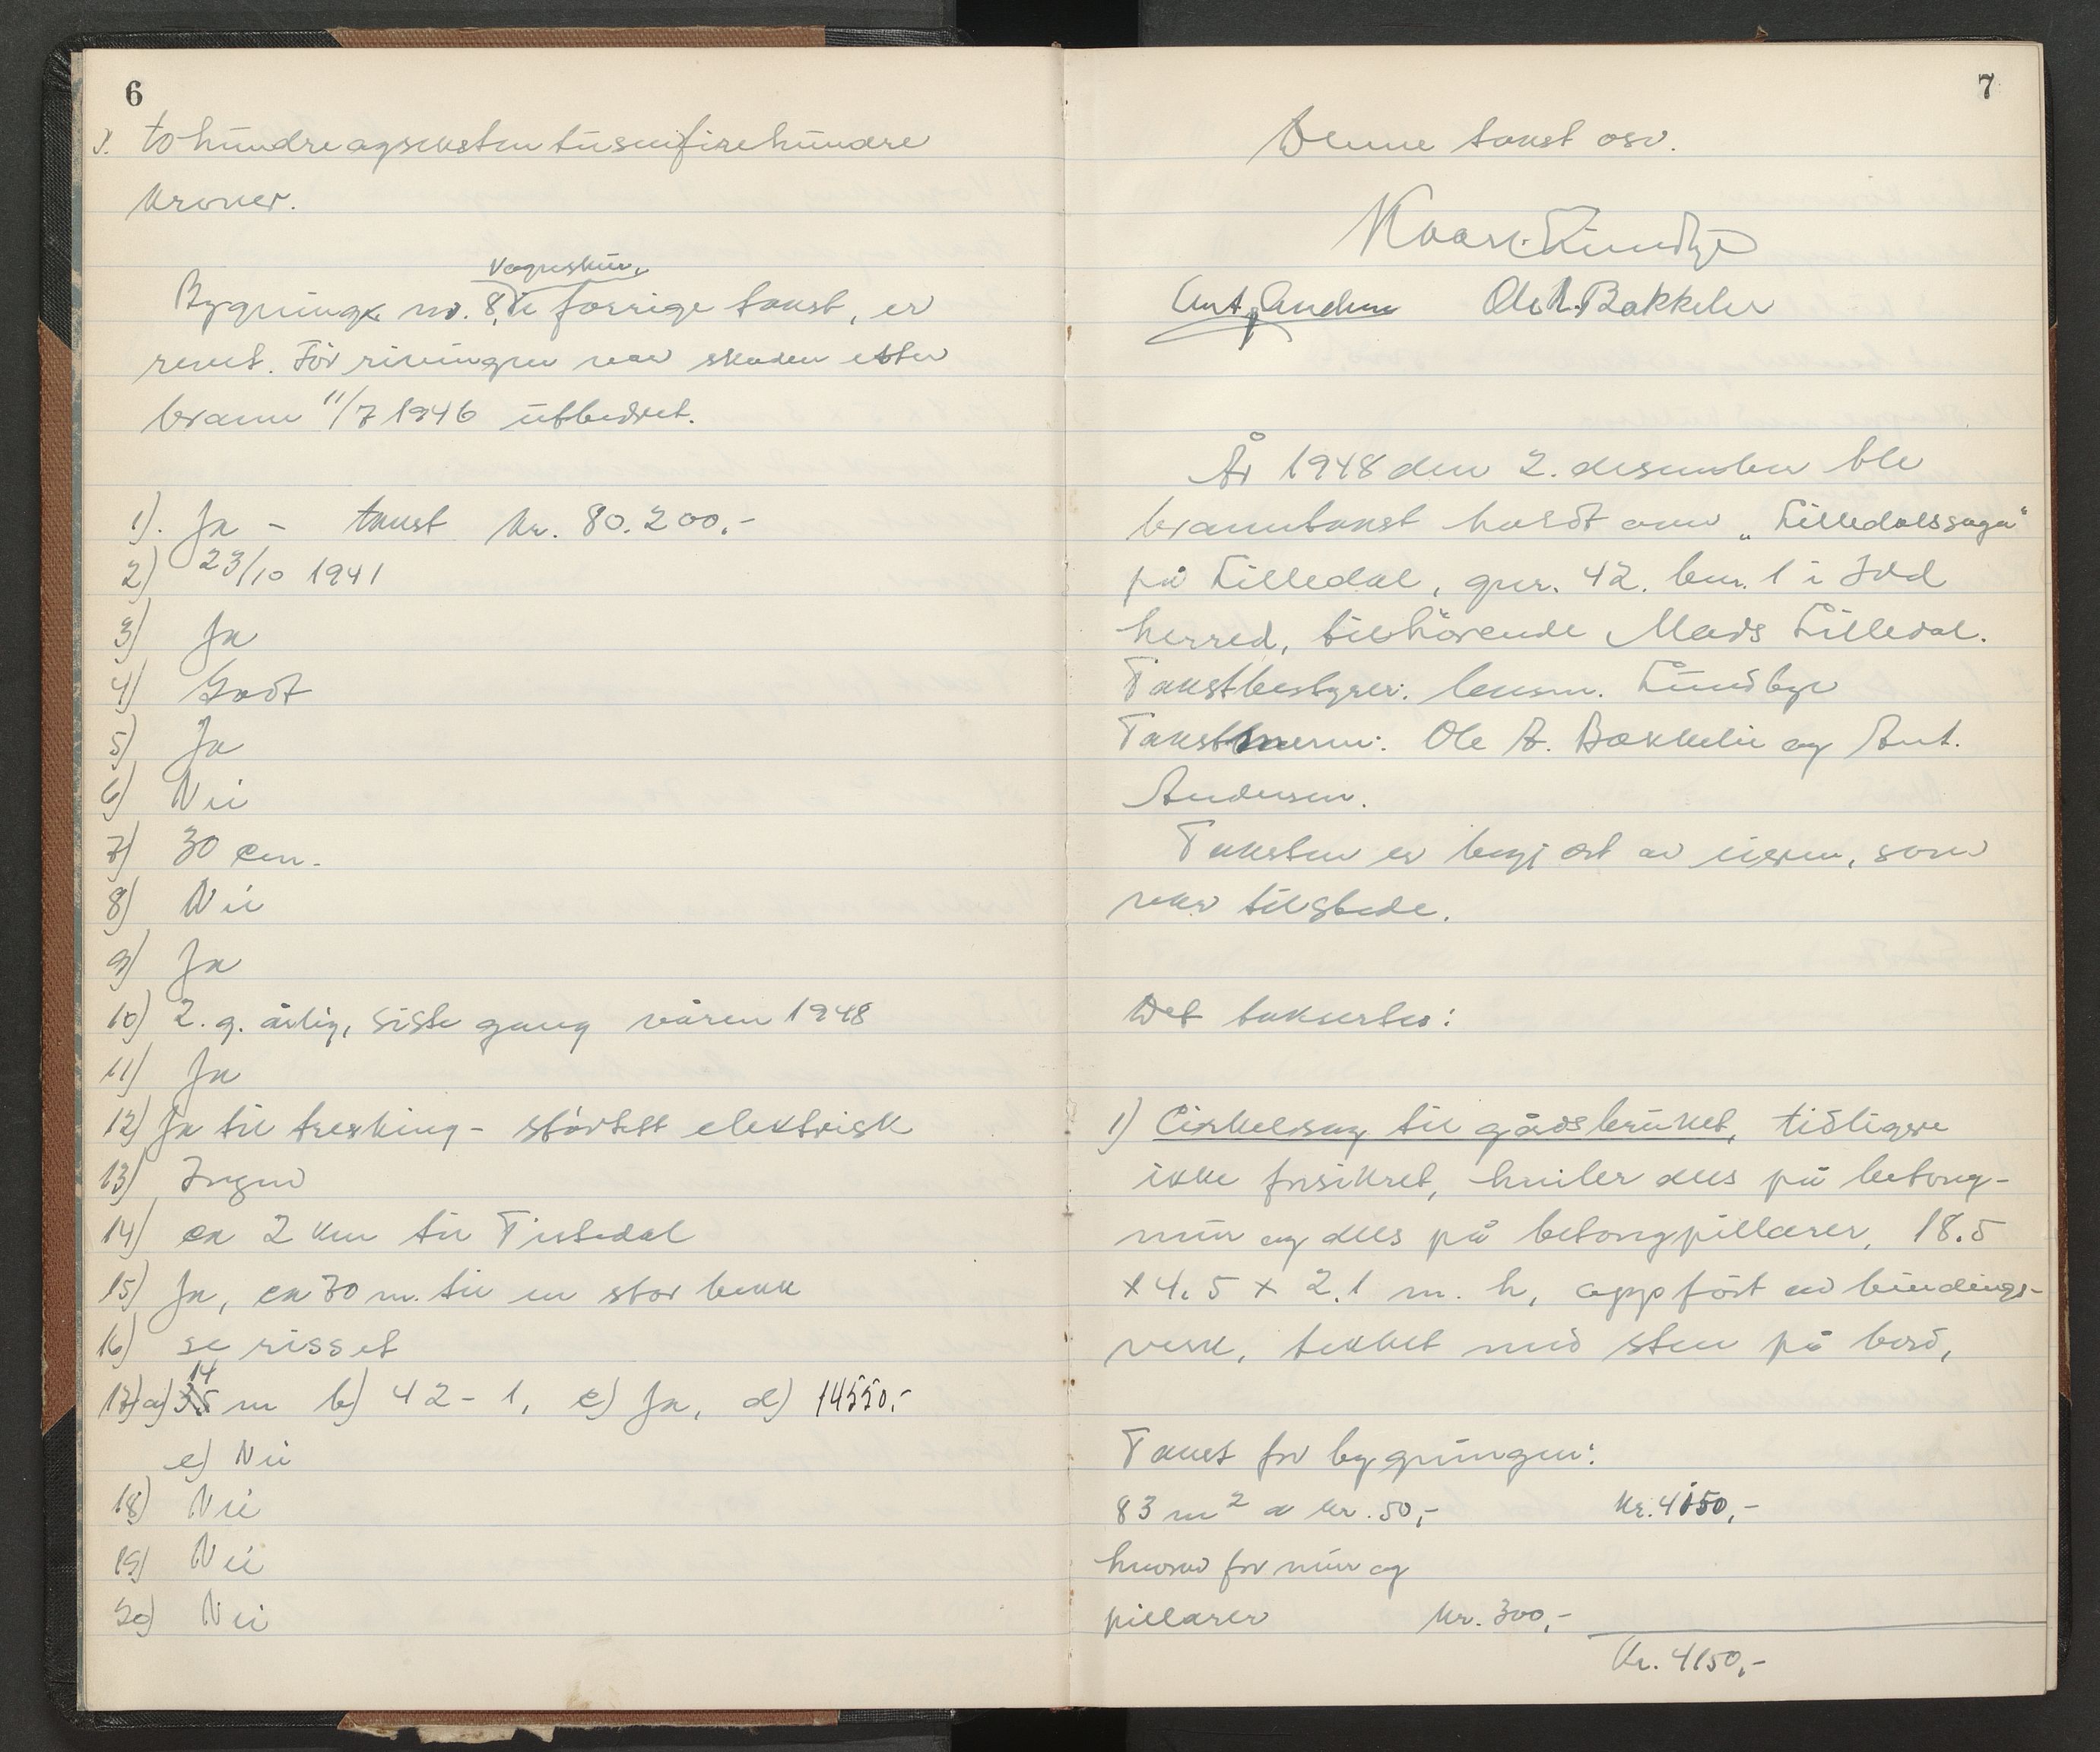 6
to hundreogseksten tusenfirehundre
kroner.
Vognskur,
Bygning nr. 8, i forrige takst, er
revet. Før rivingen var skaden etter
brann 11/7 1946 utbedret.
1). Ja - takst kr. 80.200.-
2) 23/10 1941
3) Ja
4) Godt
5) Ja
6) Nei
7) 30 cm.
8) Nei
9) Ja
10) 2. g. årlig, siste gang våren 1948
11) Ja
12) Ja til tresking - støvtett elektrisk
13) Ingen
14) ca 2 km til Tistedal
15) Ja, ca 70 m. til en stor bekk
16) se risset
14
17) a) 35 m b) 42-1, c) Ja, d) 14550.-
e) Nei
18) Nei
19) Nei
20) Nei
7
Denne takst osv.
Kaare Lundby
Ant. Andersen Ole A. Bakkelie
År 1948 den 2. desember ble
branntakst holdt over „Lilledalssaga"
på Lilledal, gnr. 42. bnr. 1 i Idd
herred, tilhørende Mads Lilledal.
Takstbestyrer: lensm. Lundby
Takstmenn: Ole A. Bakkelie og Ant.
Andersen.
Taksten er begjært av eieren, som
var tilstede.
Det takseres:
1) Cirkelsag til gårdsbruket, tidligere
ikke forsikret, hviler dels på betong-
mur og dels på betongpillarer, 18.5
x 4.5 x 2.1 m. h, oppført av bindings-
verk, tekket med sten på bord,
Takst for bygningen:
83 m2 a kr. 50,- kr. 4150,-
hvorav for mur og
pillarer kr. 300,-
Kr. 4150,-